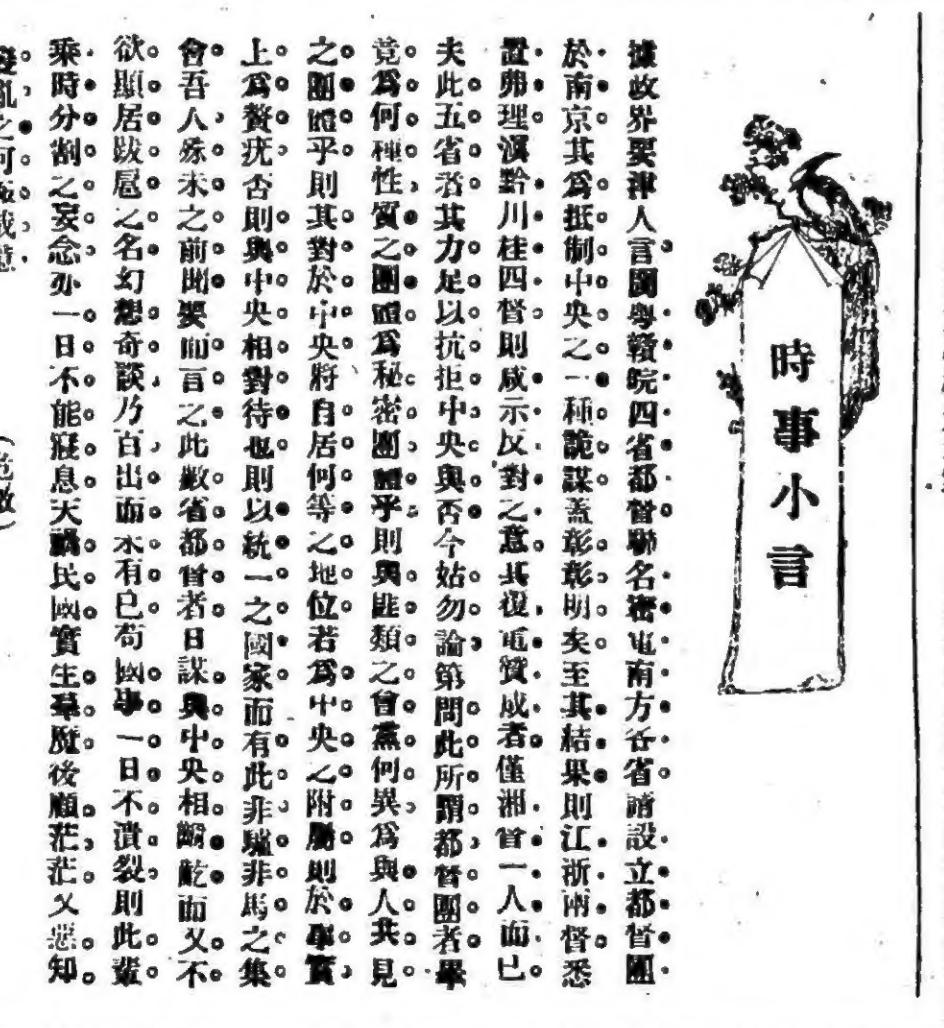 時事小言
據政界要津人言閩粵贛皖四省都督聯名密電南方各省請設立都督團
於南京其爲抵制中央之一種詭謀蓋彰彰明矣至其結果則江浙兩督悉
置弗理滇黔川桂四督則咸示反對之意其復電贊成者僅湘督一人而已
夫此五省者其力足以抗拒中央與否今姑勿論第問此所謂都督團者畢
竟爲何種性質之團體爲秘密團體乎則與匪類之會黨何異爲與人共見
之團體乎則其對於中央將自居何等之地位若爲中央之附屬則於事實
上爲贅疣否則與中央相對待也則以統一之國家而有此非驢非馬之集
會吾人殊未之前聞要而言之此數省都督者日謀與中央相齮齕而又不
欲顯居跋扈之名幻想奇談乃百出而未有已苟國事一日不潰裂則此輩
乘時分割之妄念亦一日不能寢息天禍民國實生羣魔後顧茫茫又惡知
亂之可